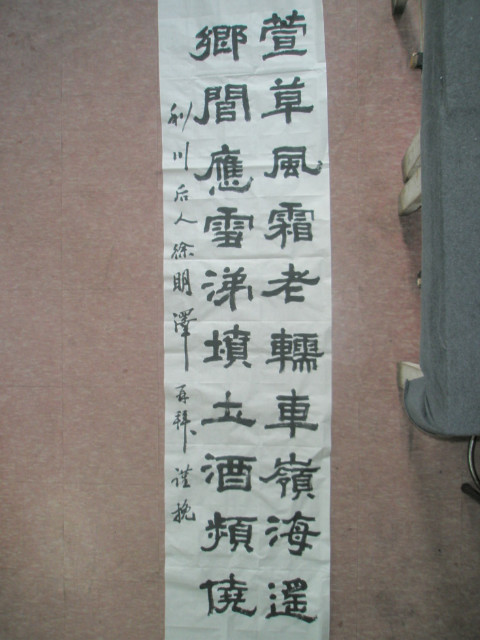 萱草風霜老轜車嶺海遙
鄉閭應雪涕墳土酒頻僥
利川后人徐明澤再拜謹挽